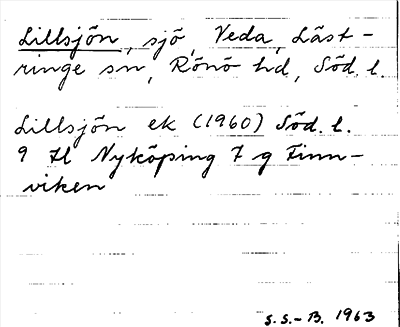 Lillsjön, sjö, Veda, Läst-
ringe sn, Rönö hd, Söd. l.
Lillsjön ek (1960) Söd. l.
9 H Nyköping 7 g Finn-
viken
S.S.-B. 1963